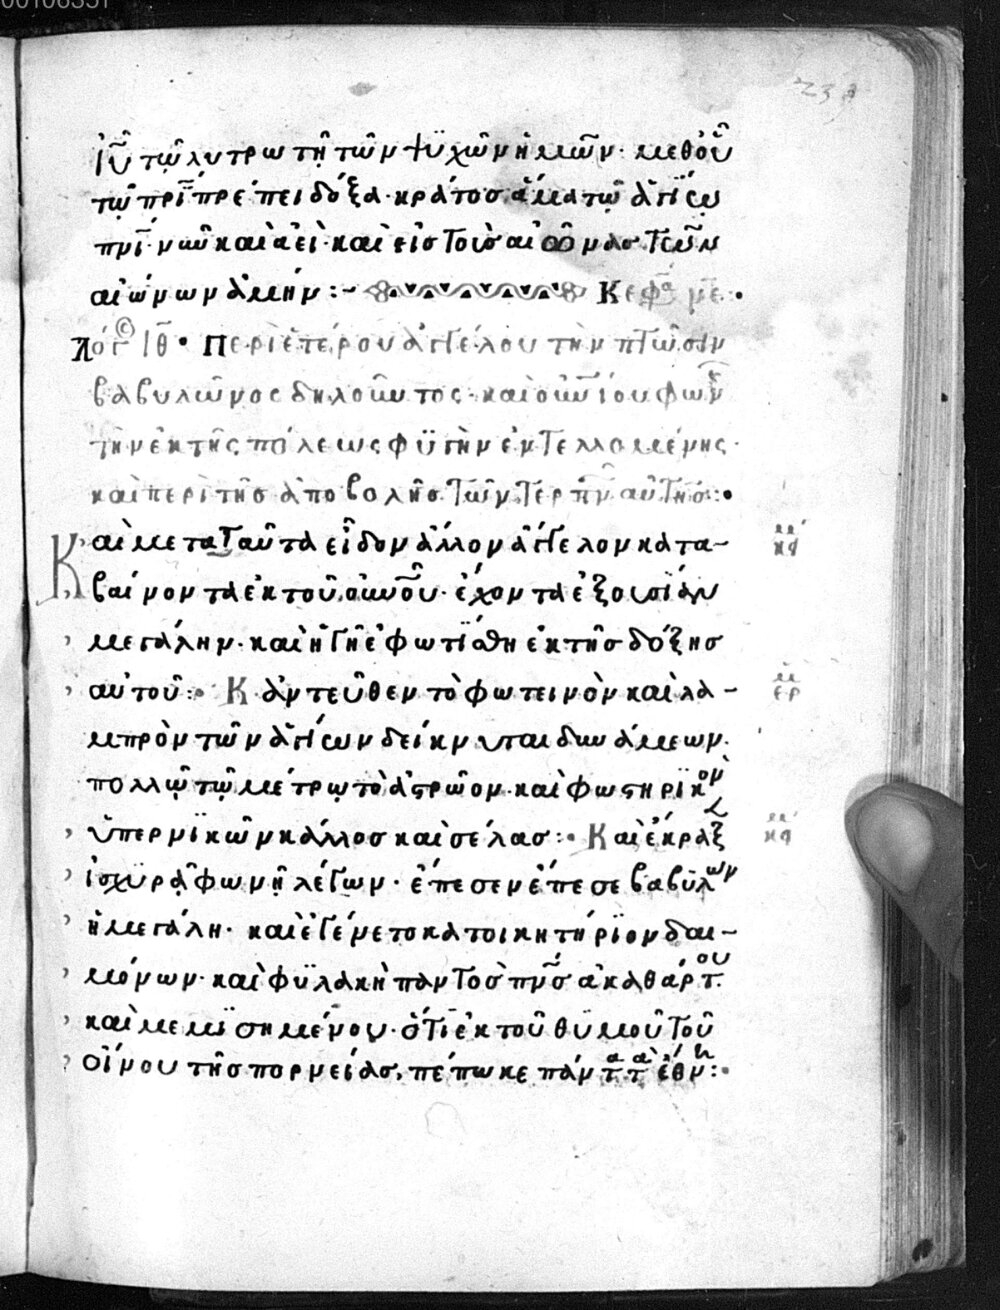 ιῦ τῷ λυτρωτῇ τῶν ψϋχῶν ἡμῶν· μεθοὗ
τῷ πρὶ πρέπει δόξα· κράτος ἅμα τῷ ἁγίῳ
πνὶ· νῦν καὶ ἀεὶ· καὶ εἰς τοὺς αἰῶνας τῶν
αἰώνων ἀμήν :- Κεφα νε·
Λόγ ιθ· Περὶ ἑτέρου ἀγγέλου τὴν πτῶσιν
βαβυλῶνος δηλοῦντος· καὶ οὐνίου φων
τὴν ἐκ τῆς πόλεως φϋγὴν ἐντελλομένης·
καὶ περὶ τῆς ἀποβολῆς τῶν τερπν αὐτῆς :·
Καὶ μετα ταῦτα εἶδον ἄλλον ἄγγελον κατα-
βαίνοντα ἐκ τοῦ οὐνοῦ· ἔχοντα ἐξουσίαν
μεγάλην· καὶ ἡ γῆ ἐφωτίσθη ἐκ τῆς δόξης
αὐτοῦ :· Κἀντεῦθεν τὸ φωτεινὸν καὶ λα-
μπρὸν τῶν ἁγίων δείκνυται δυνάμεων·
πολλῷ τῷ μέτρῳ τὸ ἀστρῶον· καὶ φωστηρϊκὸν
ὑπερνϊκῶν κάλλος καὶ σέλας :· Καὶ ἔκραξ
ἰσχϋρᾷ φωνῇ λέγων· ἔπεσεν ἔπεσε βαβϋλων
ἡ μεγάλη· καὶ ἐγένετο κατοικητήρϊον δαι-
μόνων· καὶ φϋλακὴ παντος πνς ἀκαθάρτου
καὶ μεμϊσημένου· ὅτι ἐκ τοῦ θϋμοῦ τοῦ
οἴνου τῆς πορνείας, πέπωκε πάντα τὰ ἔθνη :·
κα
κα